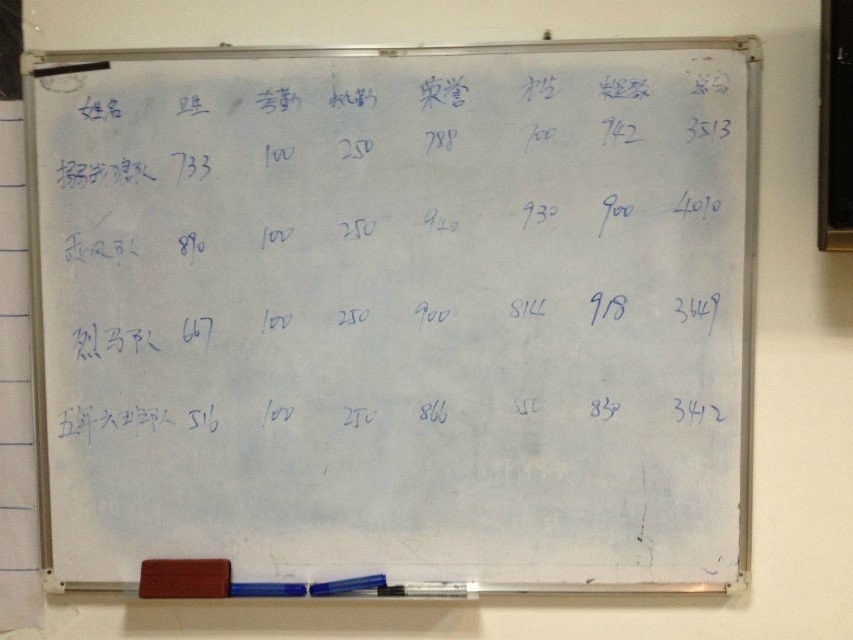 姓名 卫生 考勤 执勤 荣誉 才艺 总分
733 100 250 788 900 742 3513
乘风队 890 100 250 940 930 900 4010
烈马队 667 100 250 900 814 918 3649
五年六班队 516 100 250 866 850 830 3412